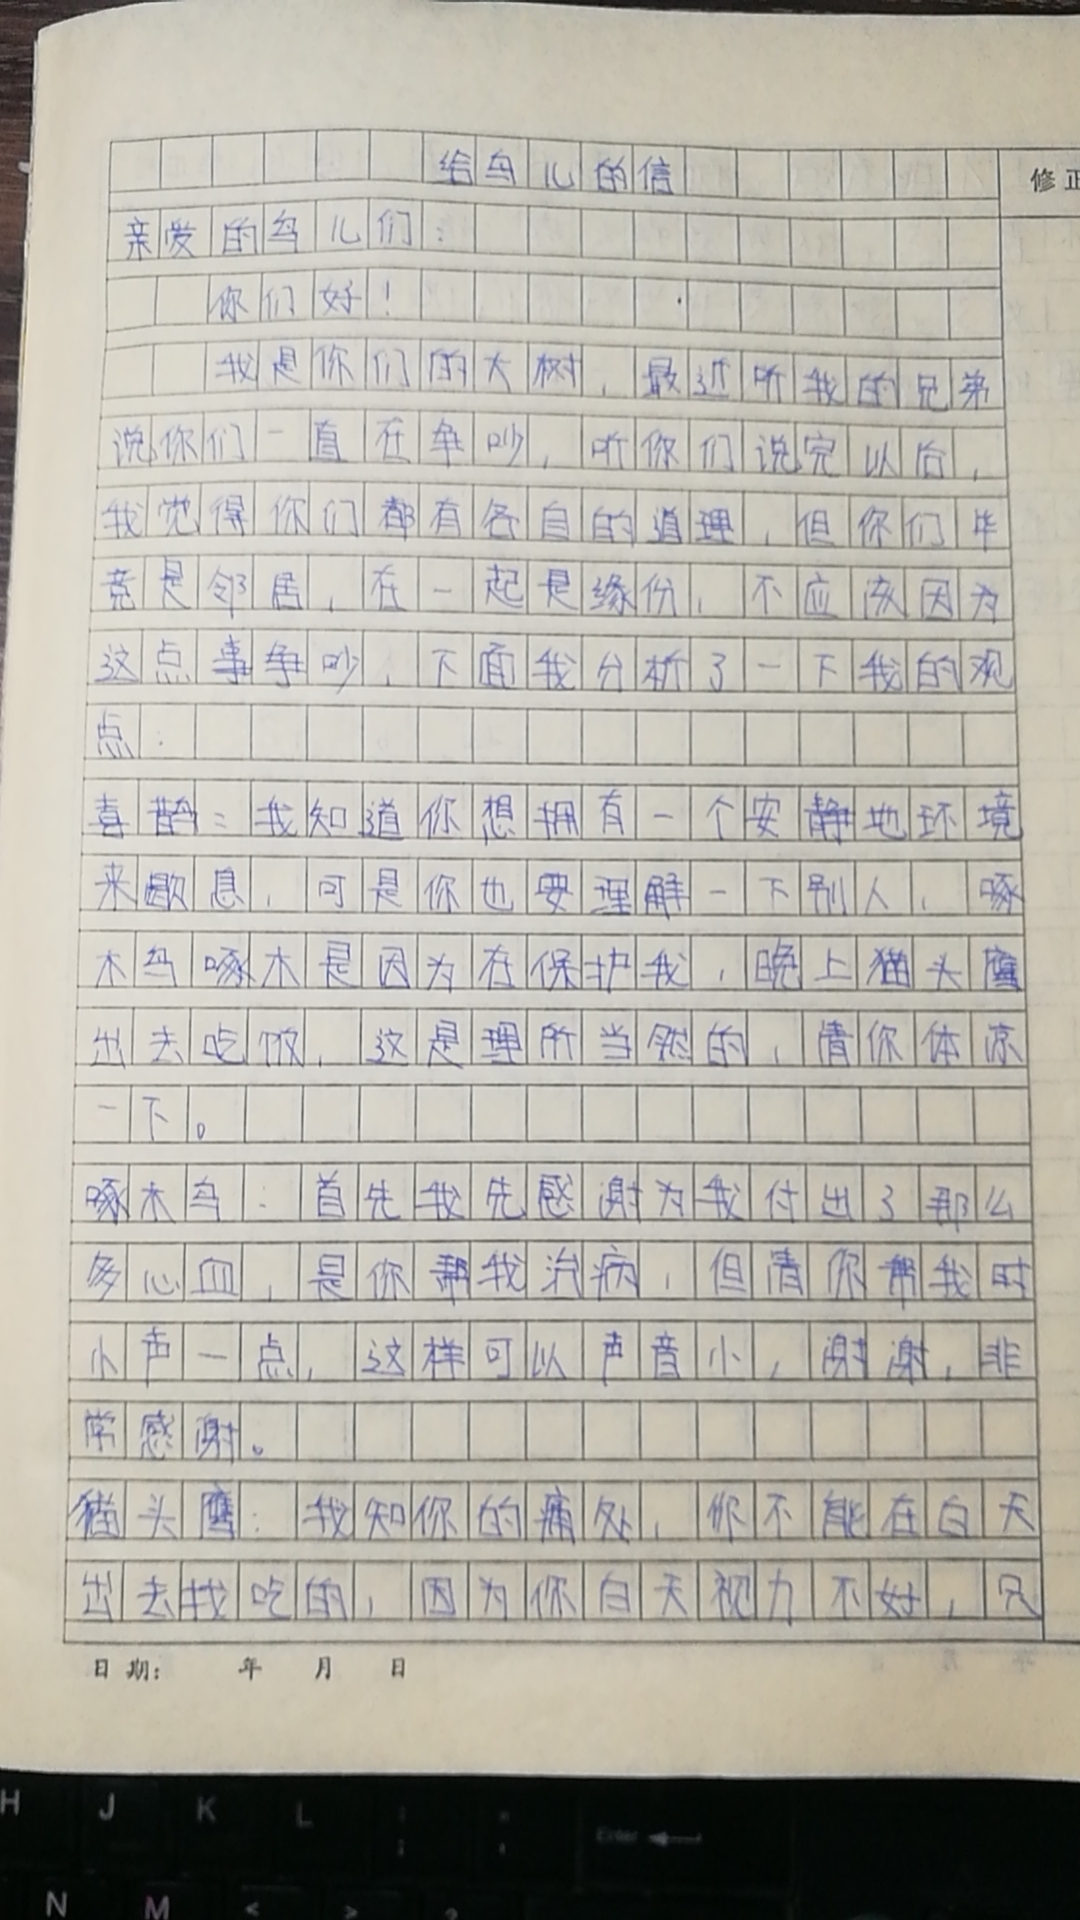 给鸟儿的信
修正
亲爱的鸟儿们：
你们好！
我是你们的大树，最近听我的兄弟
说你们一直在争吵，听你们说完以后，
我觉得你们都有各自的道理，但你们毕
竟是邻居，在一起是缘份，不应该因为
这点事争吵，下面我分析了一下我的观
点：
喜鹊：我知道你想拥有一个安静地环境
来歇息，可是你也要理解一下别人，啄
木鸟啄木是因为在保护我，晚上猫头鹰
出去吃饭，这是理所当然的，请你体凉
一下。
啄木鸟：首先我先感谢为我付出了那么
多心血，是你帮我治病，但请你帮我时
小声一点，这样可以声音小，谢谢，非
常感谢。
猫头鹰：我知你的痛处，你不能在白天
出去找吃的，因为你白天视力不好，只
日期： 年 月 日
H J K L
Enter
N M < > ?